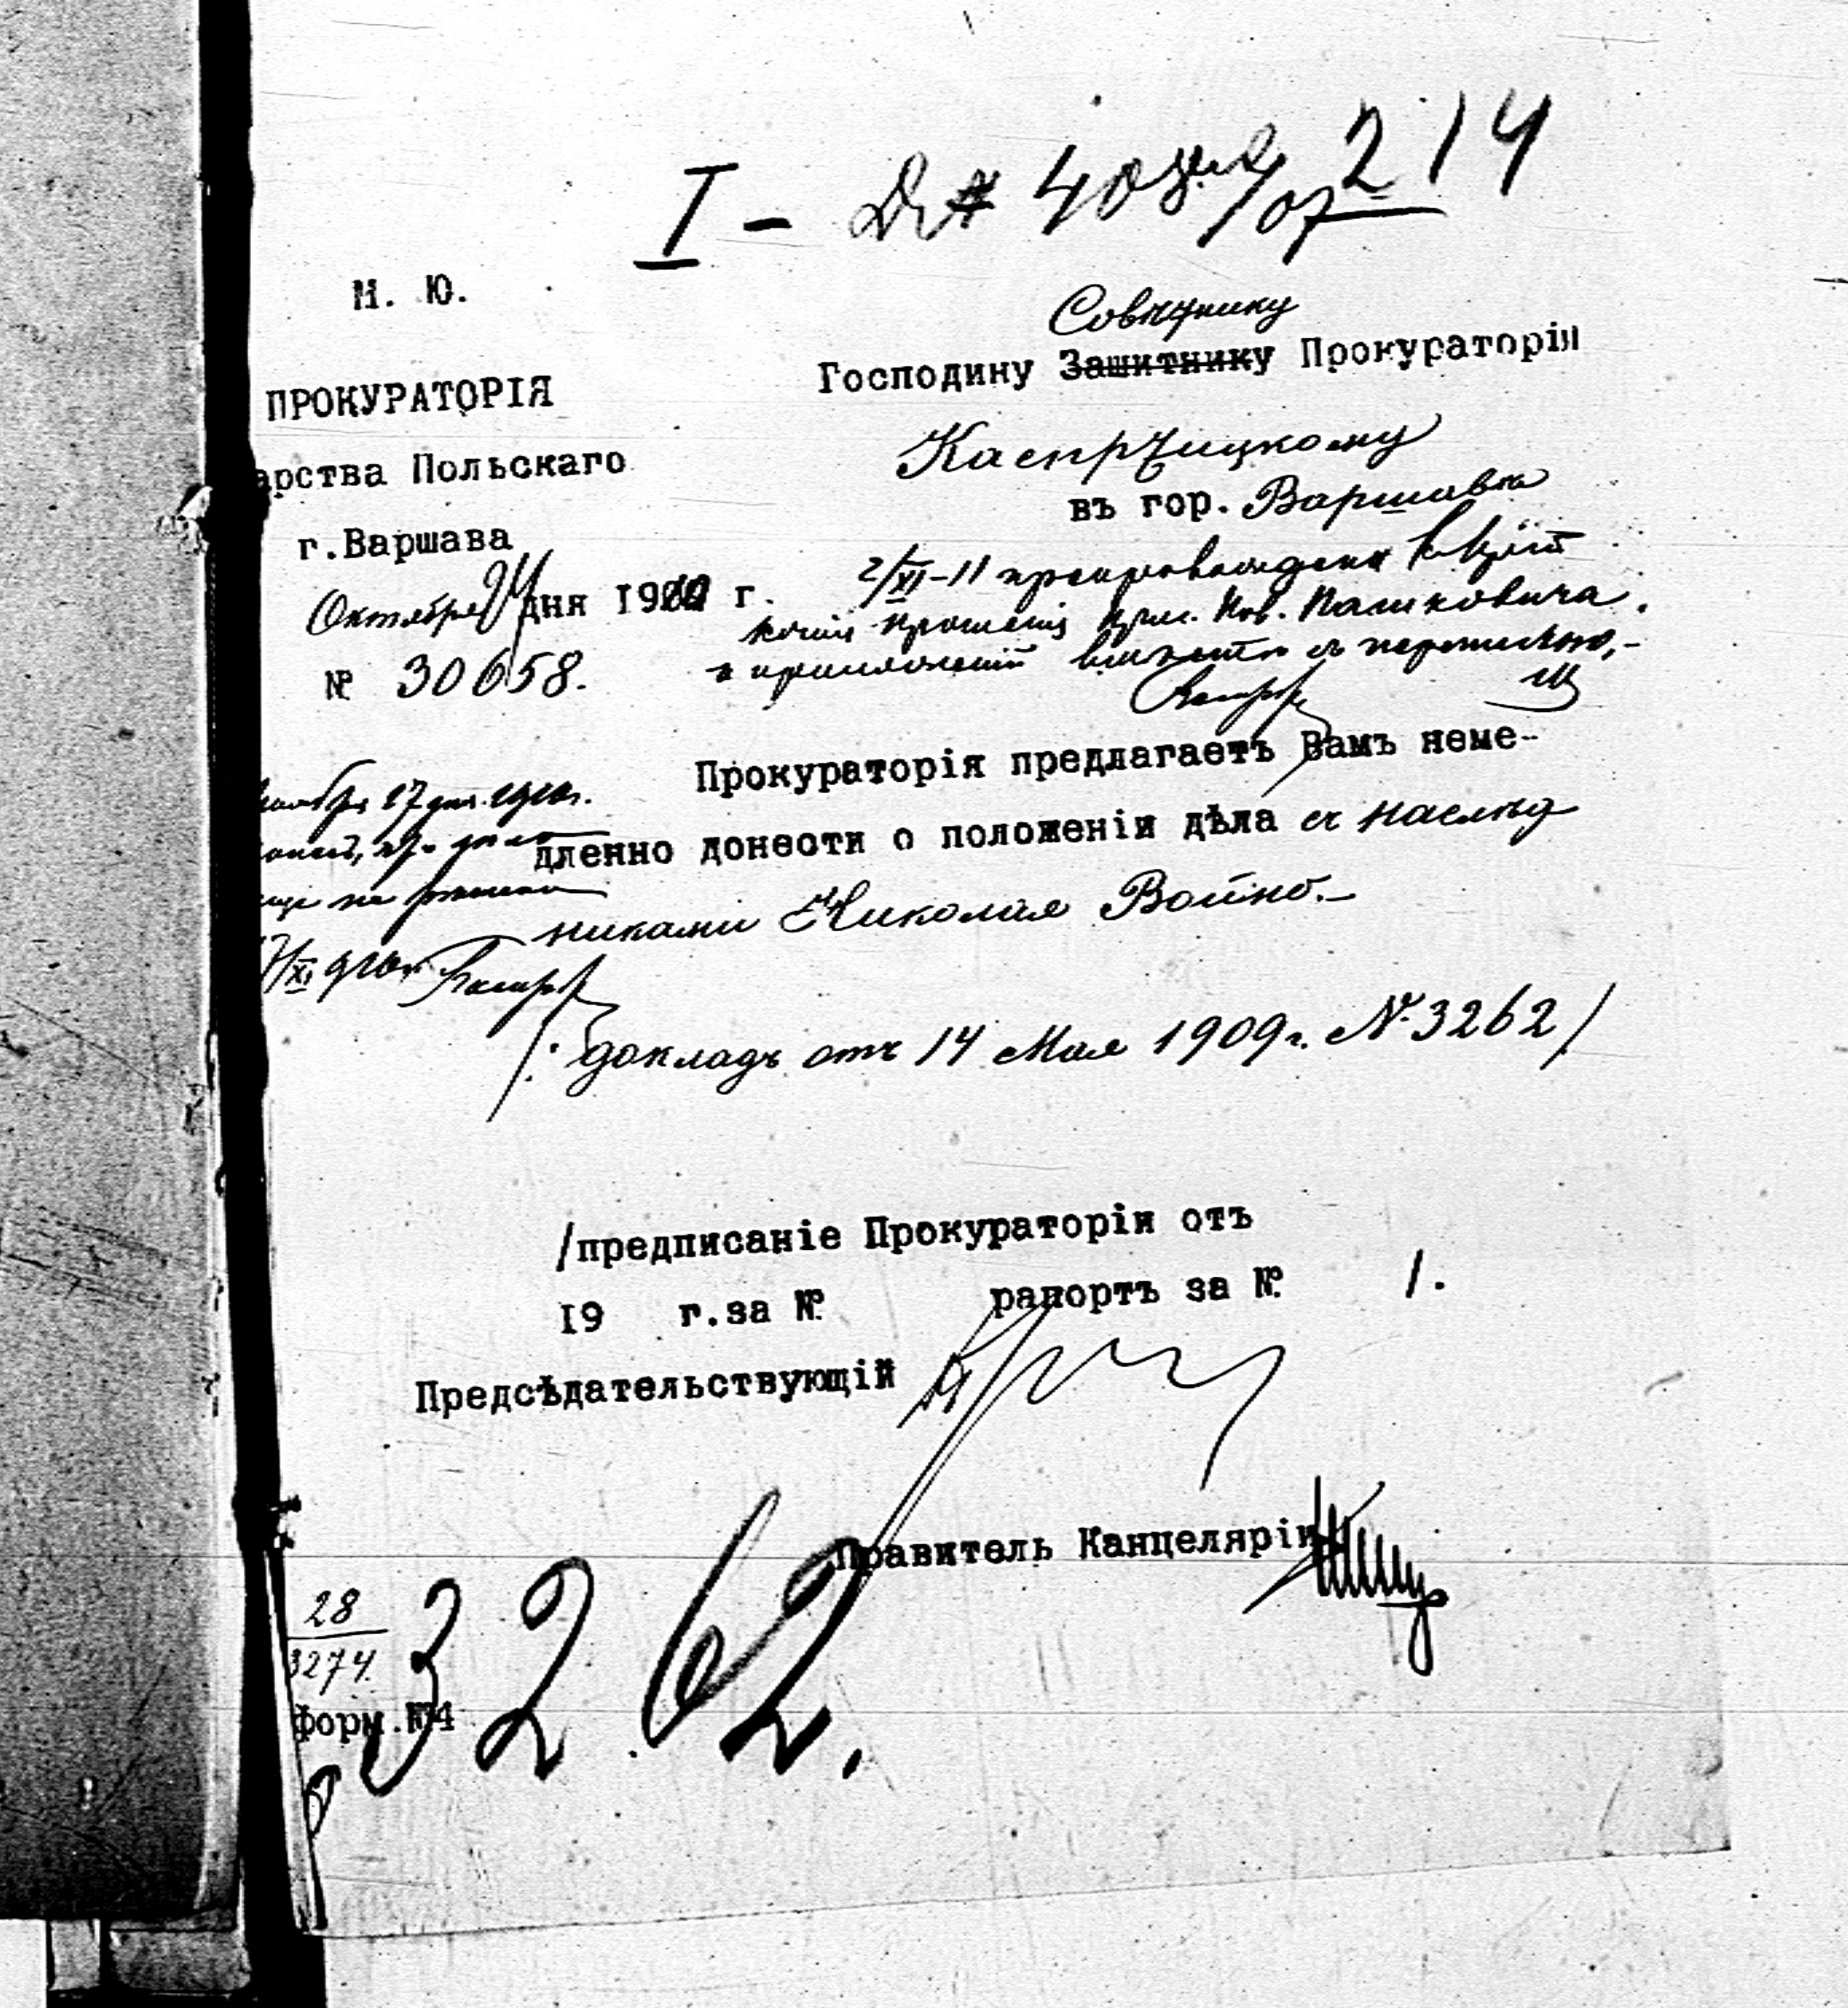 I - 408 /07 214
М. Ю.
ПРОКУРАТОРІЯ
арства Польскаго
г.Варшава
Октября 24 дня 1910 г.
№ 30658.
Совѣтнику
Господину Защитнику Прокураторіи
Каспржицкому
въ гор. Варшавѣ
2/XI-11 препровождена
копія прошенія Пашковича
вмѣстѣ съ перепискою,-
Прокураторія предлагаетъ Вамъ неме-
дленно донести о положеніи дѣла съ наслѣд
никами Николая Войно.-
27 дня 1910г.
еще не
/XI 910г.
/. докладъ отъ 14 Мая 1909 г. № 3262/
/предписаніе Прокураторіи отъ
19 г.за № рапортъ за № /.
Предсѣдательствующій
Правитель Канцеляріи
28
3274.
Форм.№4
3262.